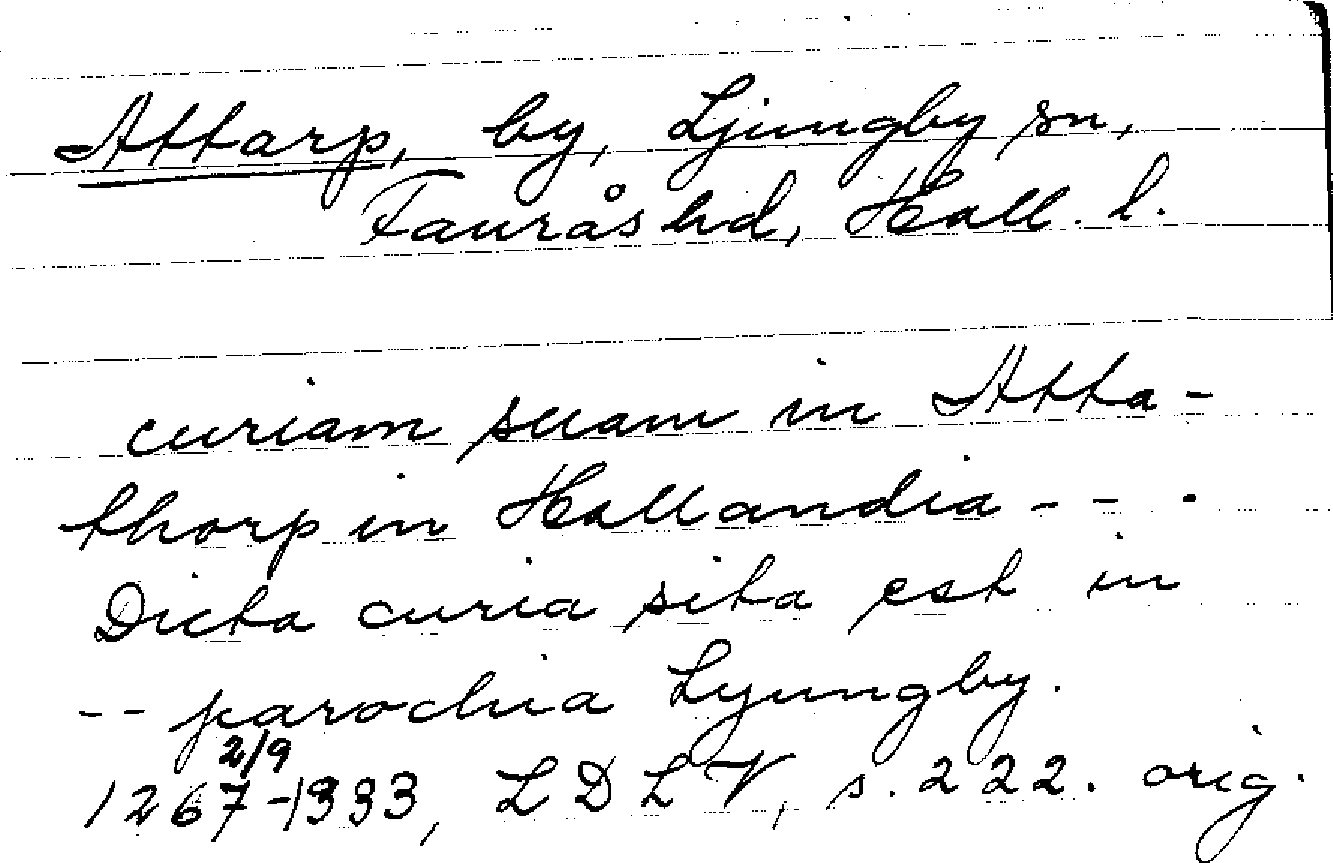 Attarp, by, Ljungby sn,
Faurås hd, Hall. l.
curiam suam in Atta-
thorp in Hallandia - - .
Dicta curia sita est in
-- parochia Lyungby.
2/9
1267-1333, LDLV, s. 222. orig.